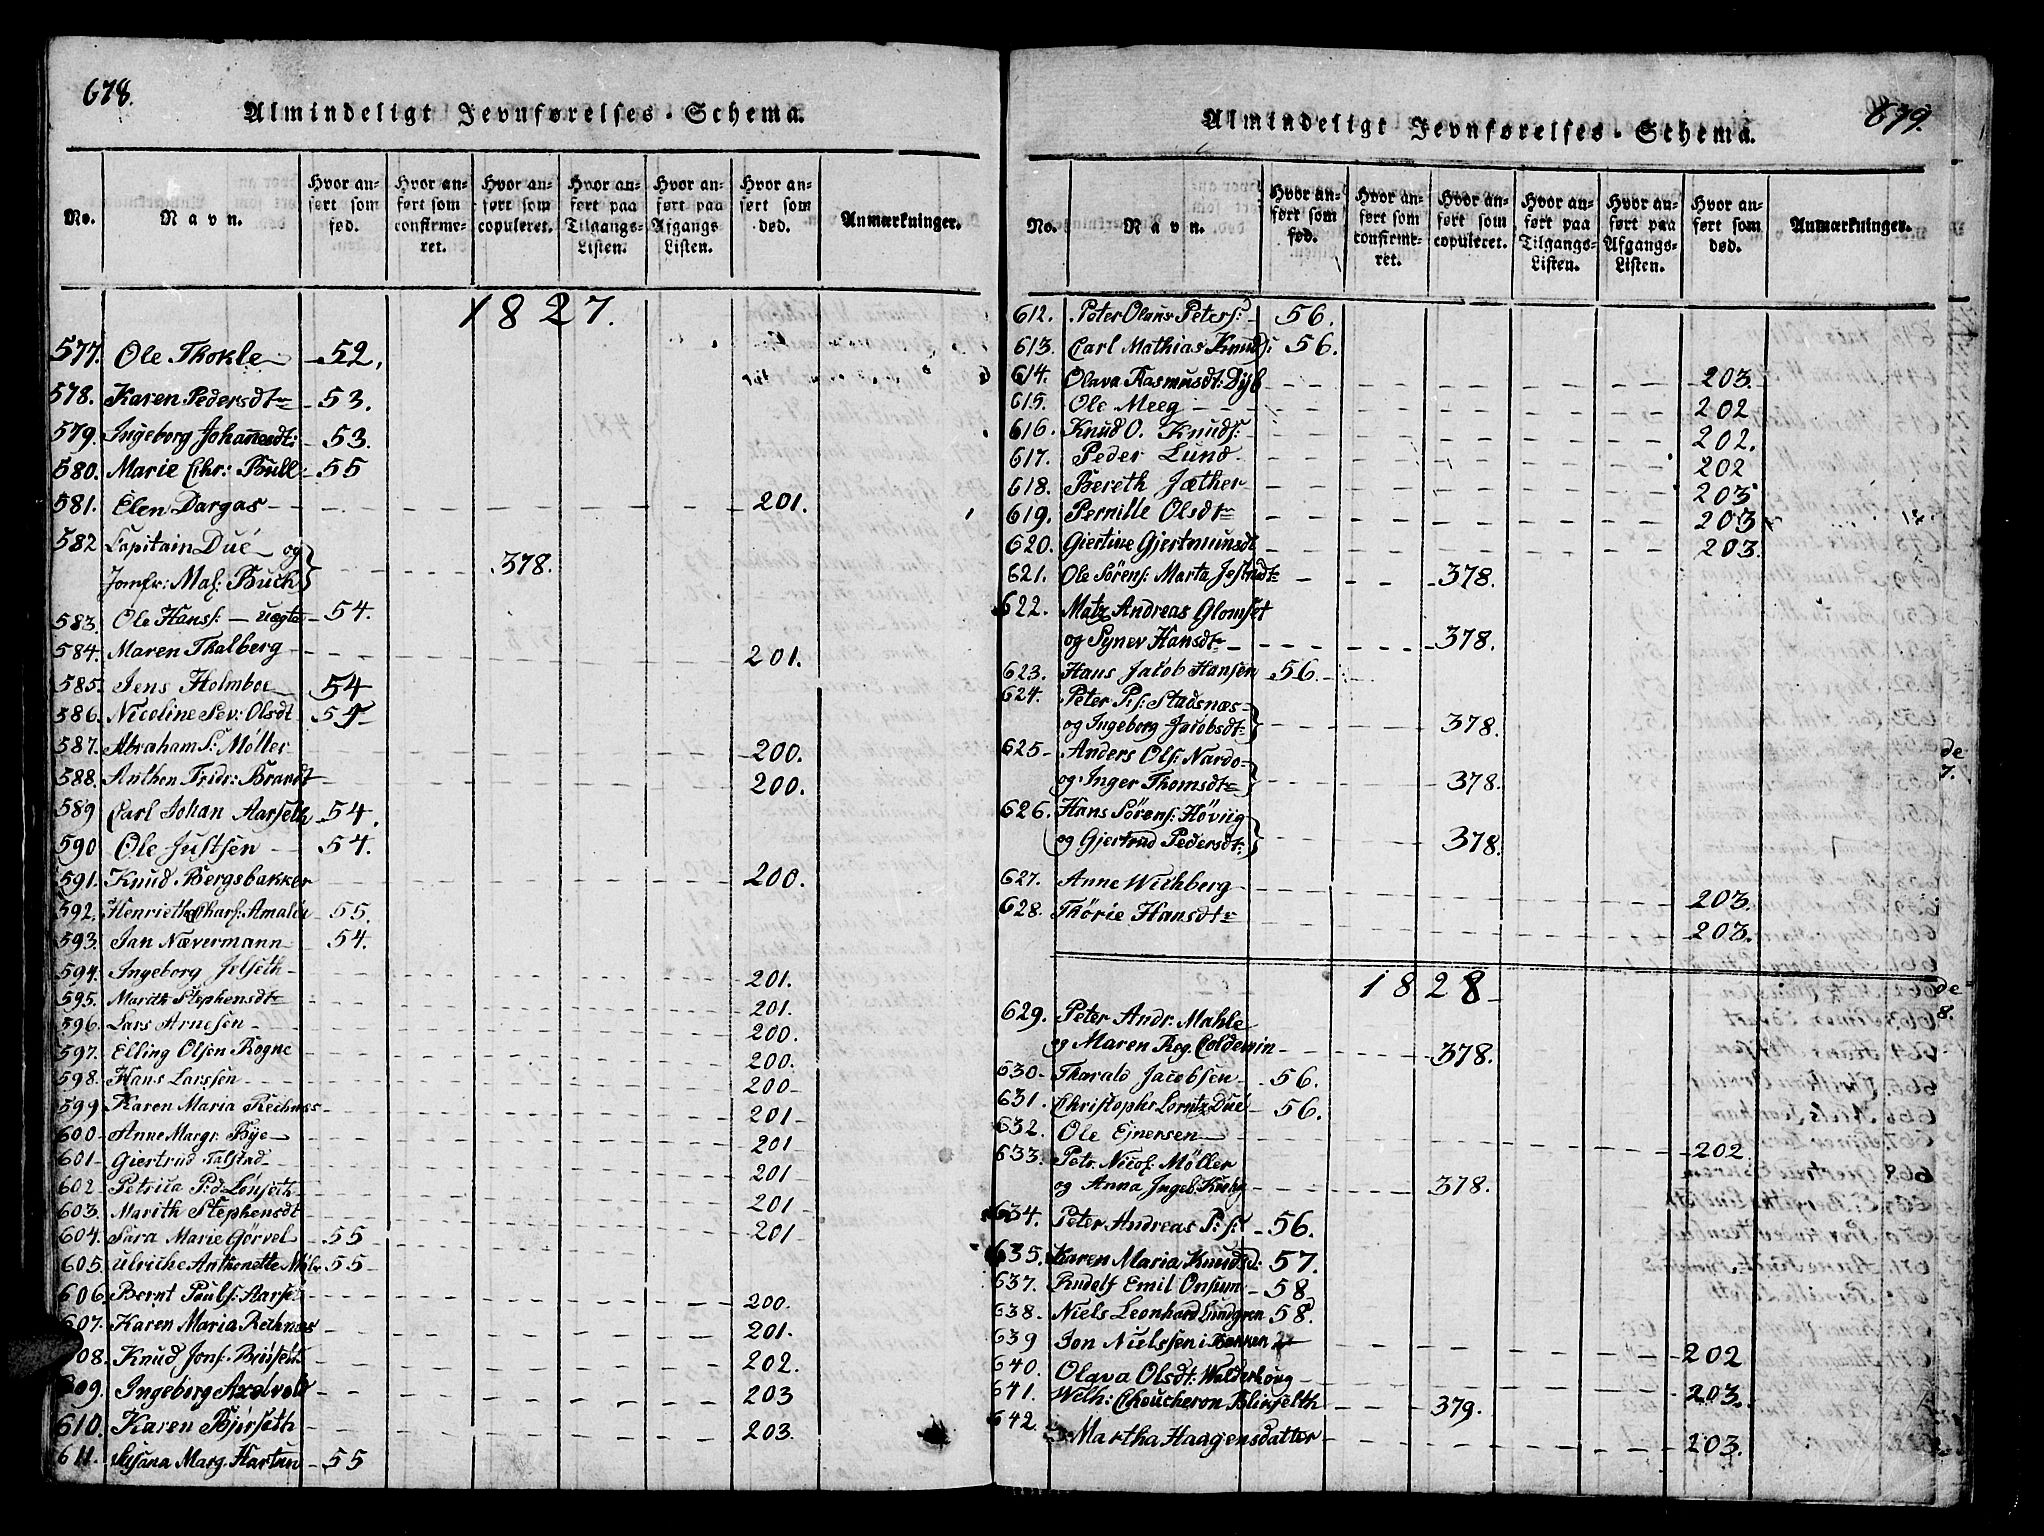 678.
Almindeligt Jevnførelses-Schema.
No.
Navn.
Hvor anført som fød.
Hvor anført som confirmeret.
Hvor anført som copuleret.
Hvor anført paa Tilgangs-Listen.
Hvor anført paa Afgangs Listen.
Hvor anført som død.
Anmærkninger.
1827.
577. Ole Thokle 52.
578. Karen Pedersdtr 53.
579. Ingeborg Johanesdt: 53.
580. Marie Chr: Bull 55
581. Elen Dargas 201.
582 Capitain Due og
Jomfr: Mas: Buck 378.
583. Ole Hans: uægte 54.
584. Maren Thalberg 201.
585. Jens Holmboe 54
586. Nicoline Sev: Olsdt 54
587. Abraham S: Møller 200.
588. Anthon Fridr: Brandt 200.
589 Carl Johan Aarseth 54.
590 Ole Justsen 54.
591. Knud Bergsbakker 200.
592. Henriette Amalia 55.
593. Jan Nævermann 54.
594. Ingeborg Jelseth 201.
595. Marith Stephensdtr 201.
596. Lars Arnesen 200.
597. Elling Olsen Rogne 200.
598. Hans Larssen 200
599 Karen Maria Rechnes 201
600 Anne Margr. Bye 201
601 Giertrud Talstad 201
602 Petrica Pd: Lønseth 201
603. Marith Stephensdt 201
604. Sara Marie Gørvel 55
605. Ulriche Anthonette 55
606. Bernt Pouls: Aarset 200.
607. Karen Maria Rechnes 201.
608. Knud Jons. Biørseth 202.
609. Ingeborg Axelvold 203
610. Karen Bjørseth 203.
611. Susana Marg. Hartun 55
679.
Almindeligt Jevnførelses-Schema.
No.
Navn.
Hvor anført som fød.
Hvor anført som confirmeret.
Hvor anført som copuleret.
Hvor anført paa Tilgangs-Listen.
Hvor anført paa Afgangs-Listen.
Hvor anført som død.
Anmærkninger.
612. Peter Olaus Peters: 56.
613. Carl Mathias Knuds: 56.
614. Olava Rasmusdt: Dyb 203.
615. Ole Meeg 202
616. Knud O. Knuds: 202.
617. Peder Lund 202
618. Bereth Jæther 203
619. Pernille Olsdtr 203
620. Giertine Gjertmunsdt 203.
621. Ole Sörens: Marta Jetsudtr 378.
622. Matz Andreas Glomset
og Synev Hansdtr 378.
623. Hans Jacob Hansen 56
624. Peter P:s: Stadsnæs
og Ingeborg Jacobsdt: 378.
625 Anders Ols: Nardo
og Inger Thomsdtr 378.
626. Hans Sörens: Hövig
og Gjertrud Pedersdt: 378.
627. Anne Wichberg 203.
628. Thörie Hansdtr 203.
1828
629. Peter Andr. Mahle
og Maren Reg. Coldevin 378.
630. Tharald Jacobsen 56.
631. Christophr Lorntz Due 56.
632. Ole Ejnersen 202
633. Petr. Nicol: Møller
og Anna Ingeb: 378.
634. Peter Andreas P:s: 56.
635. Karen Maria Knudsd: 57.
637. Rudolf Emil Onsum 58
638. Niels Leonhard Lundgren 58
639 Jon Nielssen i Bakken 202
640. Olava Olsdt: Walderhoug 203.
641. Welh: Choucheron Blixfelth 379.
642. Martha Haagensdatter 203.
de
7.
de
8.